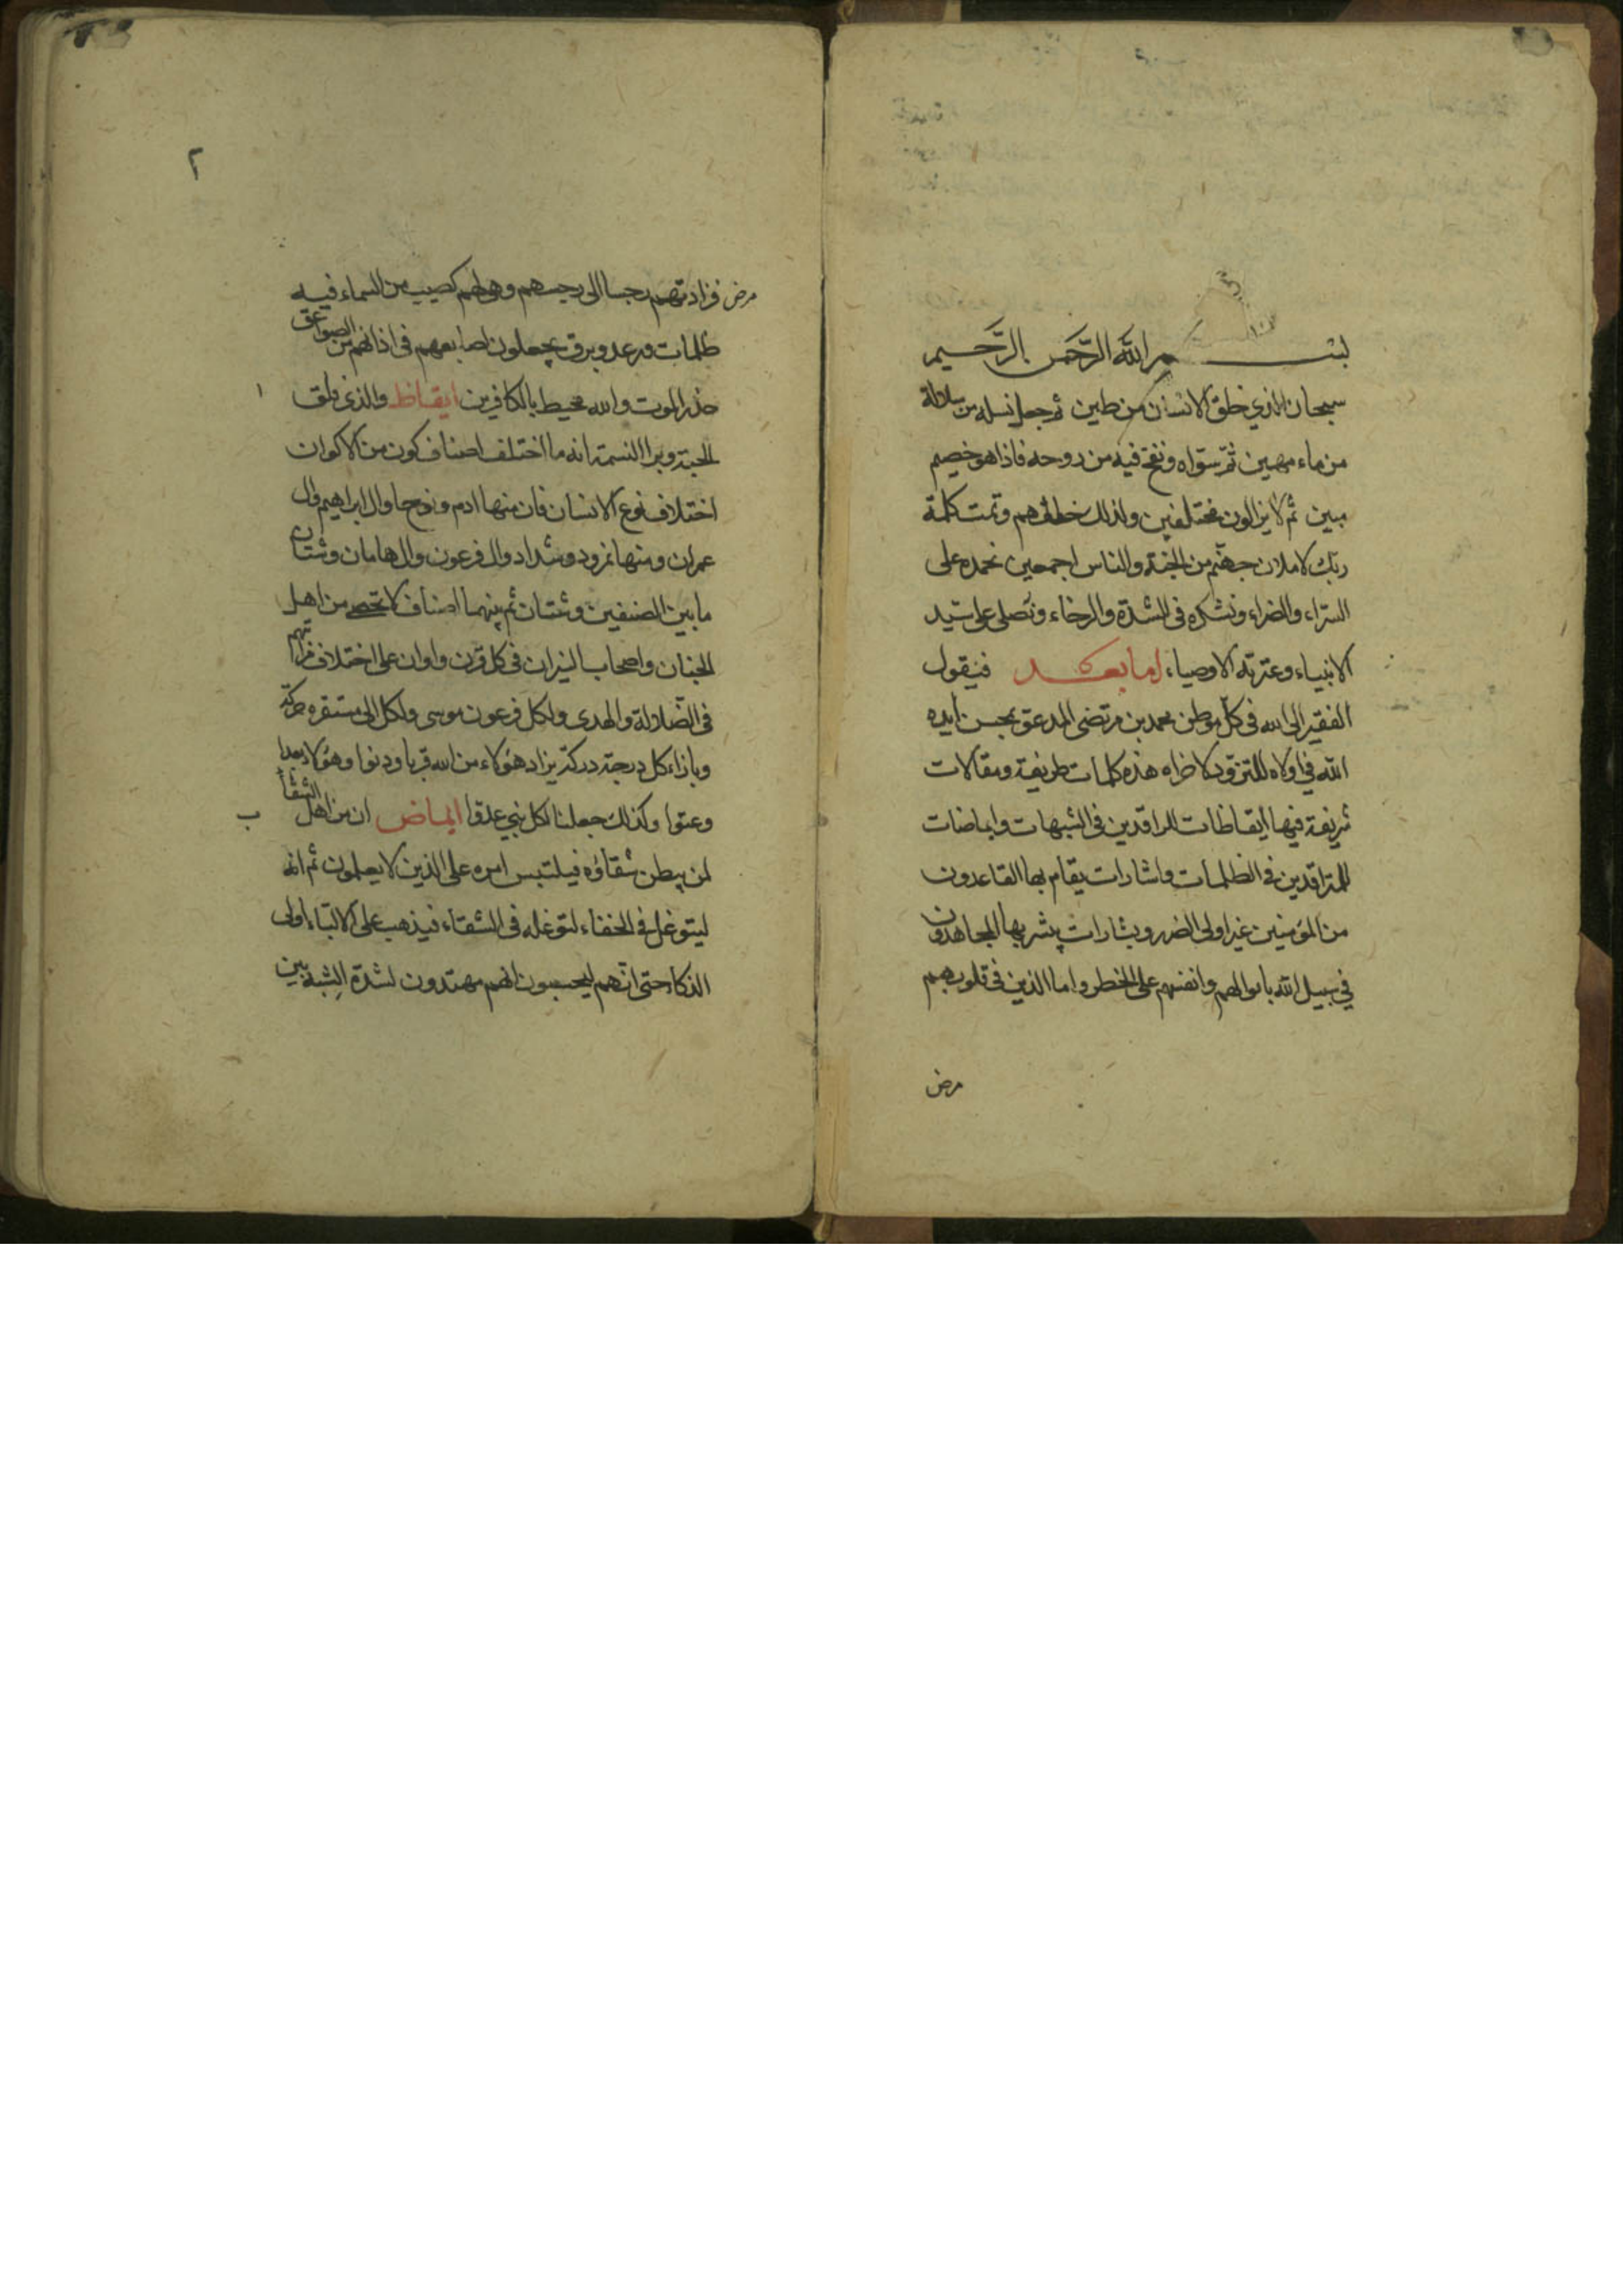 بسم الله الرحمن الرحيم
سبحان الذي خلق الانسان من طين ثم جعل نسله من سلالة
من ماء مهين ثمّ سوّاه ونفخ فيه من روحه فاذا هو خصيم
مبين ثم لا يزالون مختلفين ولذلك خلقهم وتمت كلمة
ربك لاملان جهنم من الجنة والناس اجمعين نحمده على
السرّاء والضراء ونشكره في الشدّة والرخاء ونصلي على سيّد
الانبياء وعترته الاوصياء اما بعد فيقول
الفقير الى الله في كلّ موطن محمد بن مرتضى المدعو بمحسن ايده
الله في اولاه للتزود لاخراه هذه كلمات طريفة ومقالات
شريفة فيها ايقاظات للراقدين في الشبهات وايماضات
للمتراقدين في الظلمات واشارات يقام بها القاعدون
من المؤمنين غير اولى الضرر وبشارات يبشر بها المجاهدون
في سبيل الله باموالهم وانفسهم على الخطر واما الذين في قلوبهم
مرض
٢
مرض فزادتهم رجسا الى رجسهم وهى لهم كصيب من السماء فيه
ظلمات ورعد وبرق يجعلون اصابعهم في اذانهم من الصواعق
حذر الموت والله محيط بالكافرين ايقاظ والذى فلق ١
الحبة وبرا النسمة انه ما اختلف اصناف كون من الاكوان
اختلاف نوع الانسان فان منها ادم ونوحا وال ابراهيم وال
عمران ومنها نمرود وشداد وال فرعون وال هامان وشتان
ما بين الصنفين وشتان ثم بينهما اصناف لا تحصى من اهل
الجنان واصحاب النيران في كل قرن واوان على اختلاف مراتبهم
في الضلالة والهدى ولكل فرعون موسى ولكل الى مستقره حركة
وبازاء كل درجة دركة يزاد هؤلاء من الله قربا ودنوا وهؤلاء بعدا
وعتوا وكذلك جعلنا لكل نبي عدوّا ايماض ان من اهل الشقاء ب
لمن يبطن شقاؤه فيلتبس امره على الذين لا يعلمون ثم انه
ليتوغل في الخفاء لتوغله في الشقاء فيذهب على الالبّاء اولى
الذكاء حتى انهم ليحسبون انهم مهتدون لشدّة الشبه بين